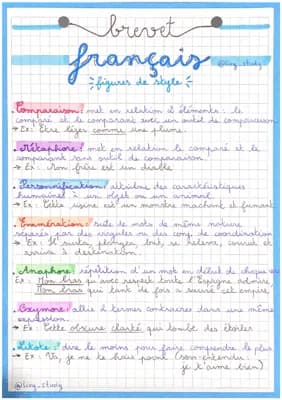 brevet
français
@liny_study
figures de style
• Comparaison : met en relation 2 éléments : le
comparé et le comparant avec un outil de comparaison
→ Ex : Être léger comme une plume.
• Métaphore : met en relation le comparé et le
comparant sans outil de comparaison.
→ Ex : Mon frère est un diable
• Personnification : attribue des caractéristiques
humaines à un objet ou un animal.
→ Ex : Cette usine est un monstre machant et fumant
• Enumération : suite de mots de même nature
séparés par des virgules ou des conj. de coordination
→ Ex : Il sauta, plongea, but, se releva, courut et
arriva à destination.
• Anaphore : répétition d'un mot en début de chaque vers
Ex : Mon bras qu'avec respect toute l'Espagne admire,
Mon bras qui tant de fois a sauvé cet empire,
• Oxymore : allie 2 termes contraires dans une même
expression.
→ Ex : Cette obscure clarté qui tombe des étoiles
• Litote : dire le moins pour faire comprendre le plus
→ Ex : Va, je ne te hais point (sous-entendu :
je t'aime bien)
@liny_study